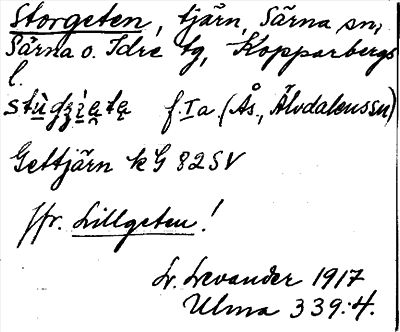 Storgeten, tjärn, Särna sn,
Särna o. Idre tg, Kopparbergs
l.
f. Ia (Ås., Älvdalenssn)
Gettjärn kG 82SV
Jfr. Lillgeten!
L. Levander 1917
Ulma 339:4.